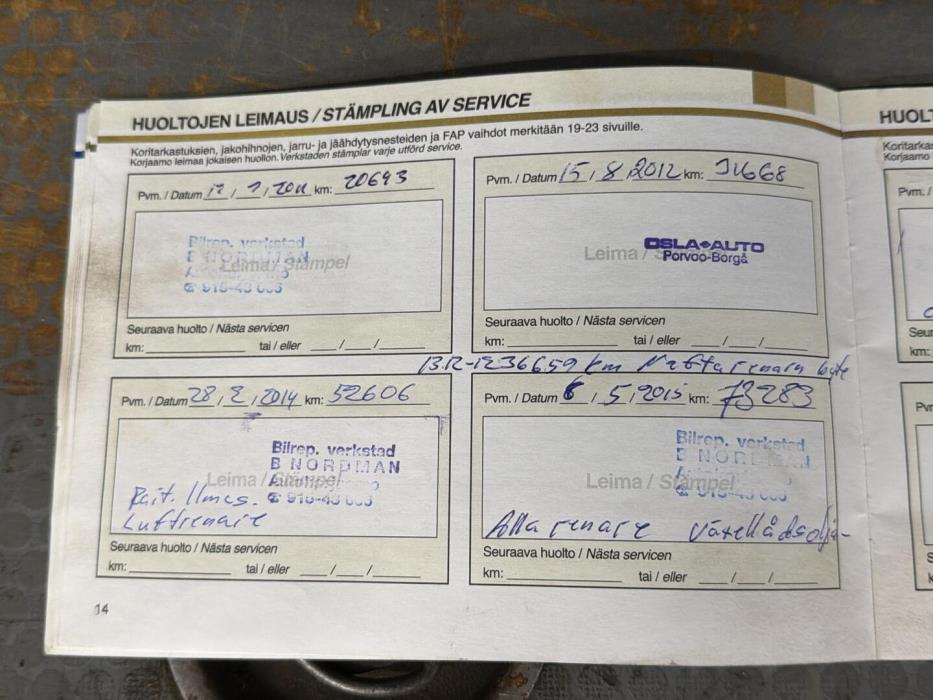 HUOLTOJEN LEIMAUS / STÄMPLING AV SERVICE
Koritarkastuksien, jakohihnojen, jarru- ja jäähdytysnesteiden ja FAP vaihdot merkitään 19-23 sivuille.
Korjaamo leimaa jokaisen huollon. Verkstaden stämplar varje utförd service.
Pvm. / Datum 12 / 7 / 2011 km: 20693
Bilrep. verkstad
B NORDMAN
Leima / Stämpel
Seuraava huolto / Nästa servicen
km: tai / eller / /
Pvm. / Datum 15 / 8 2012 km: 31668
OSLA AUTO
Leima /
Porvoo-Borgå
Seuraava huolto / Nästa servicen
km: tai / eller / /
13.12-12 36659 km
Pvm. / Datum 28 / 2 / 2014 km: 52606
Bilrep. verkstad
B NORDMAN
Leima / Stämpel
Luftrenare
Seuraava huolto / Nästa servicen
km: tai / eller / /
Pvm. / Datum 6 / 5 / 2015 km: 73283
Bilrep. verkstad
B NORDMAN
Leima / Stämpel
Alla renare Växellådsolja-
Seuraava huolto / Nästa servicen
km: tai / eller / /
14
HUOLT
Koritarkas
Korjaamo
Pvm
Seur
km:
Pvr
S